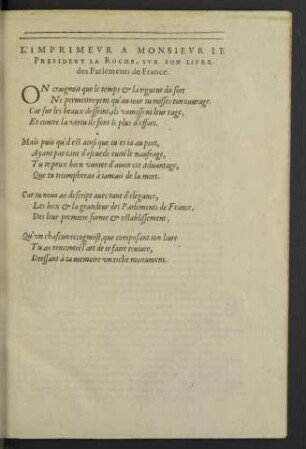 L'IMPRIMEVR A MONSIEVR LE
PRESIDENT LA ROCHE, SVR SON LIVRE
des Parlements de France.
ON craignoit que le temps & la rigueur du sort
Ne permettroyent qu'au iour tu misses ton ouurage
Car sur les beaux desseins, ils vomissent leur rage,
Et contre la vertu ils font le plus d'effort.
Mais puis qu'il est ainsi que tu es ia au port,
Ayant par tant d'escueils euité le naufrage,
Tu te peux bien vanter d'auoir cet aduantage,
Que tu triompheras à iamais de la mort.
Car tu nous as descript auec tant d'elegance,
Les loix & la grandeur des Parlements de France,
Des leur premiere forme & establissement,
Qu'vn chascun recognoist, que composant ton liure
Tu as rencontré l'art de te faire reuiure,
Dressant à ta memoire vn riche monument.